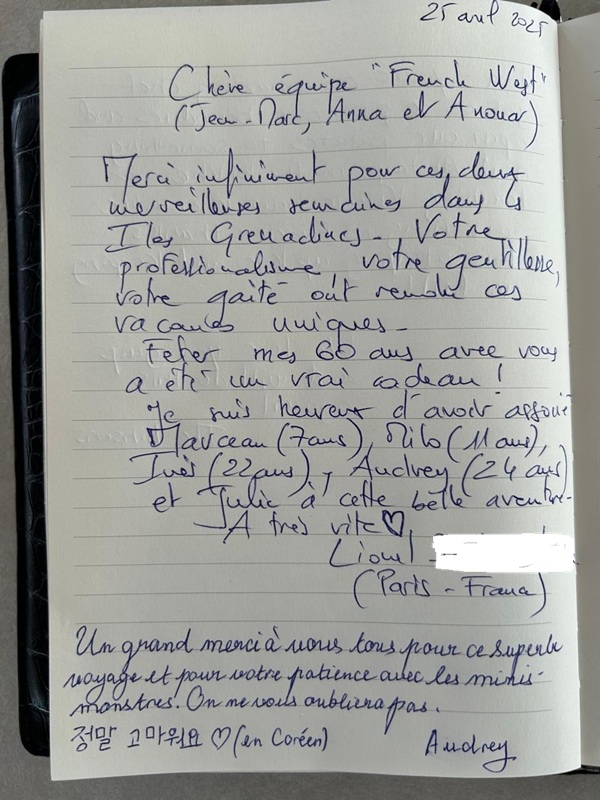 25 avril 2025
Chère équipe "French West"
(Jean-Marc, Anna et Anouar)
Merci infiniment pour ces deux
merveilleuses semaines dans les
Iles Grenadines. Votre
professionalisme, votre gentillesse,
votre gaité ont rendu ces
vacances uniques.
Fêter mes 60 ans avec vous
a été un vrai cadeau !
Je suis heureux d'avoir associé
Marceau (7 ans), Milo (11 ans),
Inès (22 ans), Audrey (24 ans)
et Julie à cette belle aventure.
A très vite ♡
Lionel
(Paris - France)
Un grand merci à vous tous pour ce superbe
voyage et pour votre patience avec les minis-
monstres. On ne vous oubliera pas.
정말 고마워요 ♡ (en Coréen)
Audrey